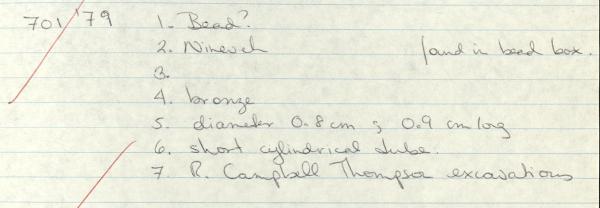 701 '79 1. Bead?
2. Nineveh found in bead box.
3.
4. bronze
5. diameter 0.8 cm ; 0.9 cm long
6. short cylindrical tube.
7. R. Campbell Thompson excavations